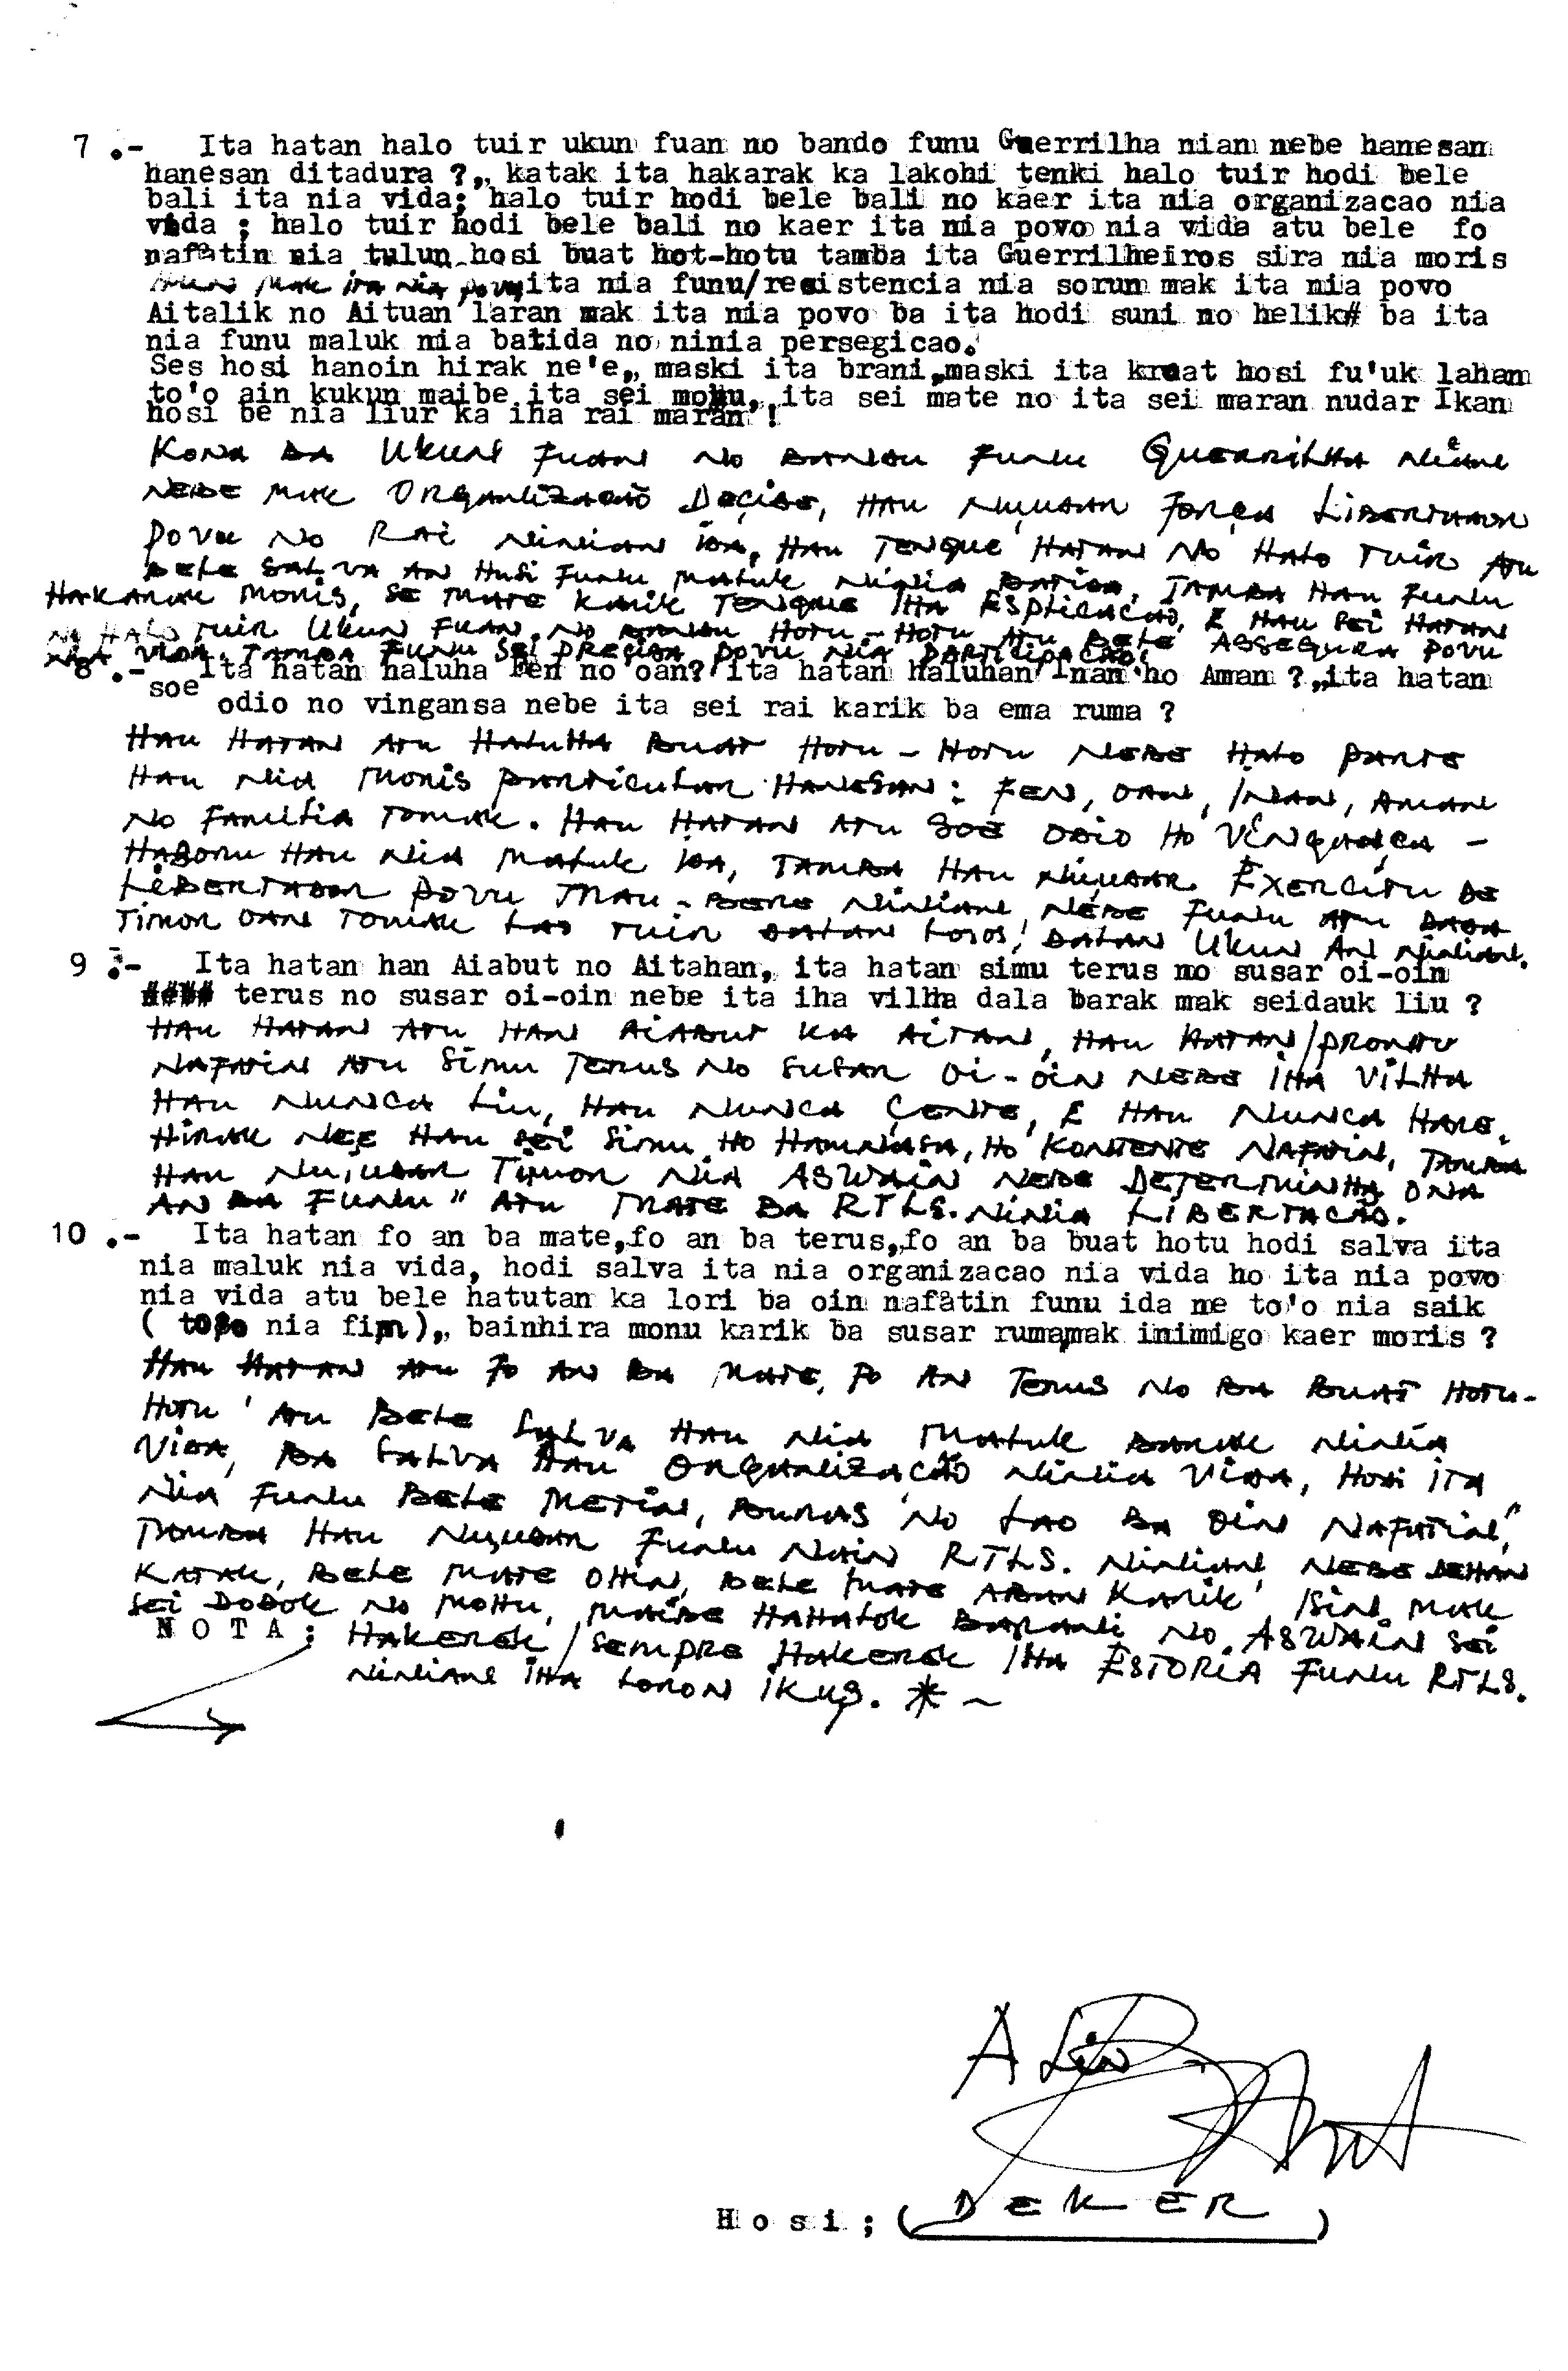 7 .- Ita hatan halo tuir ukun fuan no bando funu Guerrilha nian nebe hanesan
hanesan ditadura ?,, katak ita hakarak ka lakohi tenki halo tuir hodi bele
bali ita nia vida; halo tuir hodi bele bali no kaer ita nia organizacao nia
vida ; halo tuir hodi bele bali no kaer ita nia povo nia vida atu bele fo
nafatin nia tulun hosi buat hot-hotu tamba ita Guerrilheiros sira nia moris
mak ita nia povo, ita nia funu/resistencia nia sorun mak ita nia povo
Aitalik no Aituan laran mak ita nia povo ba ita hodi suni no helik# ba ita
nia funu maluk nia batida no ninia persegicao.
Ses hosi hanoin hirak ne'e,, maski ita brani,maski ita kraat hosi fu'uk laham
to'o ain kukun maibe ita sei mohu,,ita sei mate no ita sei maran nudar Ikan
hosi be nia liur ka iha rai maran !
KONA BA UKUN FUAN NO BANDU FUNU GUERRILHA NIAN
NEBE MAK ORGANIZACAÕ DEÇIDE, HAU NUÇUDAR FORÇA LIBERTADOR
POVU NO RAI NINIAN IDA, HAU TENQUE HATAN NO HALO TUIR ATU
BELE SALVA AN HUSI FUNU MALUK NINIA BATIDA, TAMBA HAU FUNU
HAKARAK MORIS, SE MATE KARIK TENQUE IHA ESPLICACAO, E HAU SEI HATAN
NO HALO TUIR UKUN FUAN NO BANDU HOTU-HOTU ATU BELE ASSEGURA POVU
NIA VIDA, TAMBA FUNU SEI PRECISA POVU NIA PARTICIPACÃO!
8 .- Ita hatan haluha Fen no oan? ita hatan haluhan Inan ho Aman ?,,ita hatan
soe odio no vingansa nebe ita sei rai karik ba ema ruma ?
HAU HATAN ATU HALUHA BUAT HOTU-HOTU NEBE HALO PARTE
HAU NIA MORIS PARTICULAR HANESAN: FEN, OAN, INAN, AMAN
NO FAMILIA TOMAK. HAU HATAN ATU SOE ODIO HO VINGANÇA -
HASORU HAU NIA MALUK IDA, TAMBA HAU NUÇUDAR EXERCITU DE
LIBERTADOR POVU MAU-BERE NINIAN, NEBE FUNU ATU DADA
TIMOR OAN TOMAK LAO TUIR DALAN LOLOS, DALAN UKUN AN NINIAN.
9 .- Ita hatan han Aiabut no Aitahan, ita hatan simu terus no susar oi-oin
#### terus no susar oi-oin nebe ita iha vilha dala barak mak seidauk liu ?
HAU HATAN ATU HAN AIABUT KA AITAN, HAU HATAN/PRONTU
NAFATIN ATU SIMU TERUS NO SUSAR OI-OIN NEBE IHA VILHA
HAU NUNCA LIU, HAU NUNCA ÇENTE, E HAU NUNCA HARE.
HIRAK NEE HAU SEI SIMU HO HAMNASA, HO KONTENTE NAFATIN, TAMBA
HAU NUÇUDAR TIMOR NIA ASWAIN NEBE DETERMINHA ONA
AN BA FUNU " ATU MATE BA RTLS. NINIA LIBERTACÃO.
10 .- Ita hatan fo an ba mate,fo an ba terus,,fo an ba buat hotu hodi salva ita
nia maluk nia vida, hodi salva ita nia organizacao nia vida ho ita nia povo
nia vida atu bele hatutan ka lori ba oin nafatin funu ida ne to'o nia saik
( to'o nia fim),, bainhira monu karik ba susar ruma,mak inimigo kaer moris ?
HAU HATAN ATU FO AN BA MATE, FO AN TERUS NO BA BUAT HOTU-
HOTU ' ATU BELE SALVA HAU NIA MALUK BARAK NINIA
VIDA, BA SALVA HAU ORGANIZACÃO NINIA VIDA, HODI ITA
NIA FUNU BELE METIN, BURAS NO LAO BA OIN NAFATIN,"
TAMBA HAU NUÇUDAR FUNU NAIN RTLS. NINIAN NEBE DEHAN
KATAK, BELE MATE OHIN, BELE MATE ABAN KARIK ISIN MAK
SEI DODOK NO MOHU, MAIBE HAHALOK BARANI NO ASWAIN SEI
N O T A ; HAKEREK / SEMPRE HAKEREK IHA ESTORIA FUNU RTLS.
NINIAN IHA LORON IKUS. * ~
A Lin
H o s i ; ( DEKER )